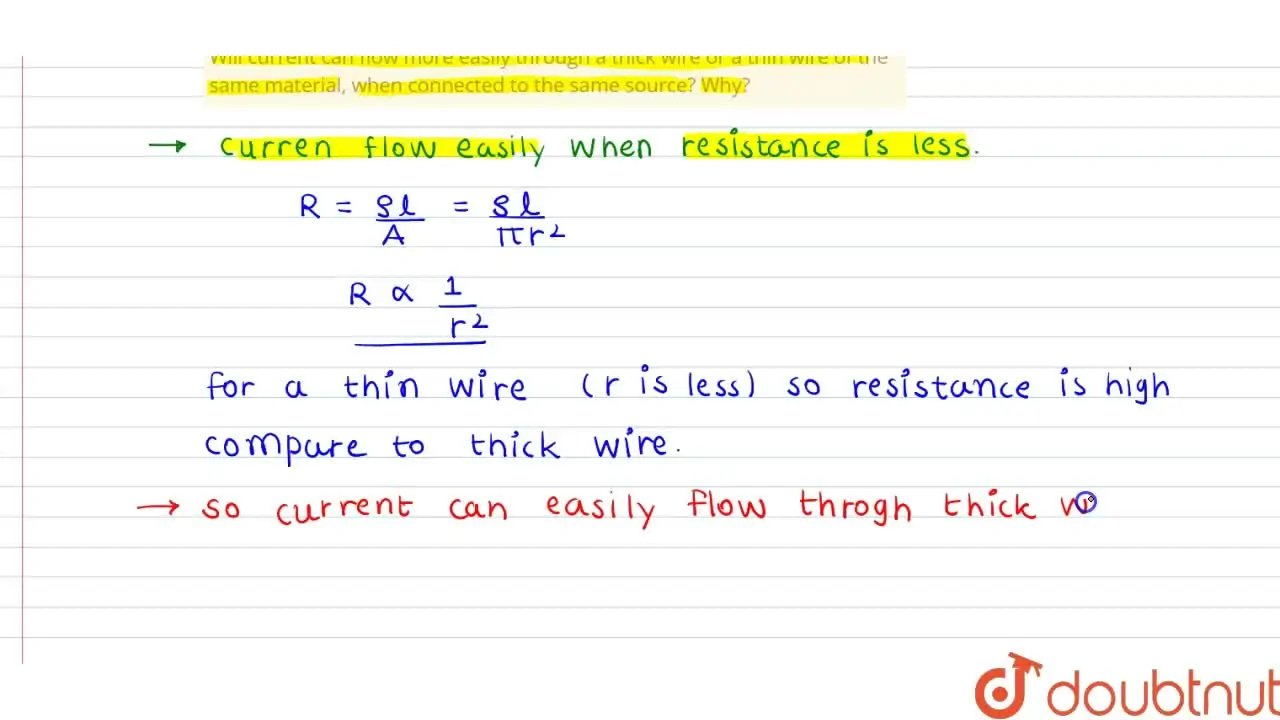 Will current can flow more easily through a thick wire or a thin wire of the
same material, when connected to the same source? Why?
→ curren flow easily when resistance is less.
R = ρl/A = ρl/πr²
R ∝ 1/r²
for a thin wire (r is less) so resistance is high
compare to thick wire.
→ so current can easily flow throgh thick wi
doubtnut